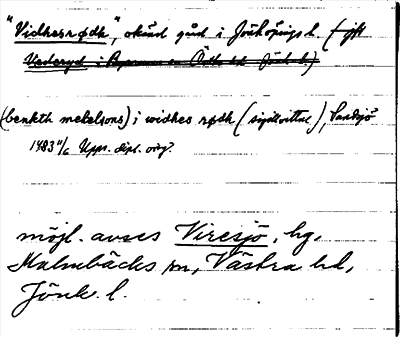 "Vidhesrødh", okänd gård i Jönköpings l. (jft
Vederyd i Byarums sn Östbo hd Jönk. l.)
(benkth metelsons) i widhes rødh (sigillvittne), Sandsjö
1483 11/6 Upps. dipl. orig.
möjl. avses Viresjö, hg,
Malmbäcks sn, Västra hd,
Jönk. l.